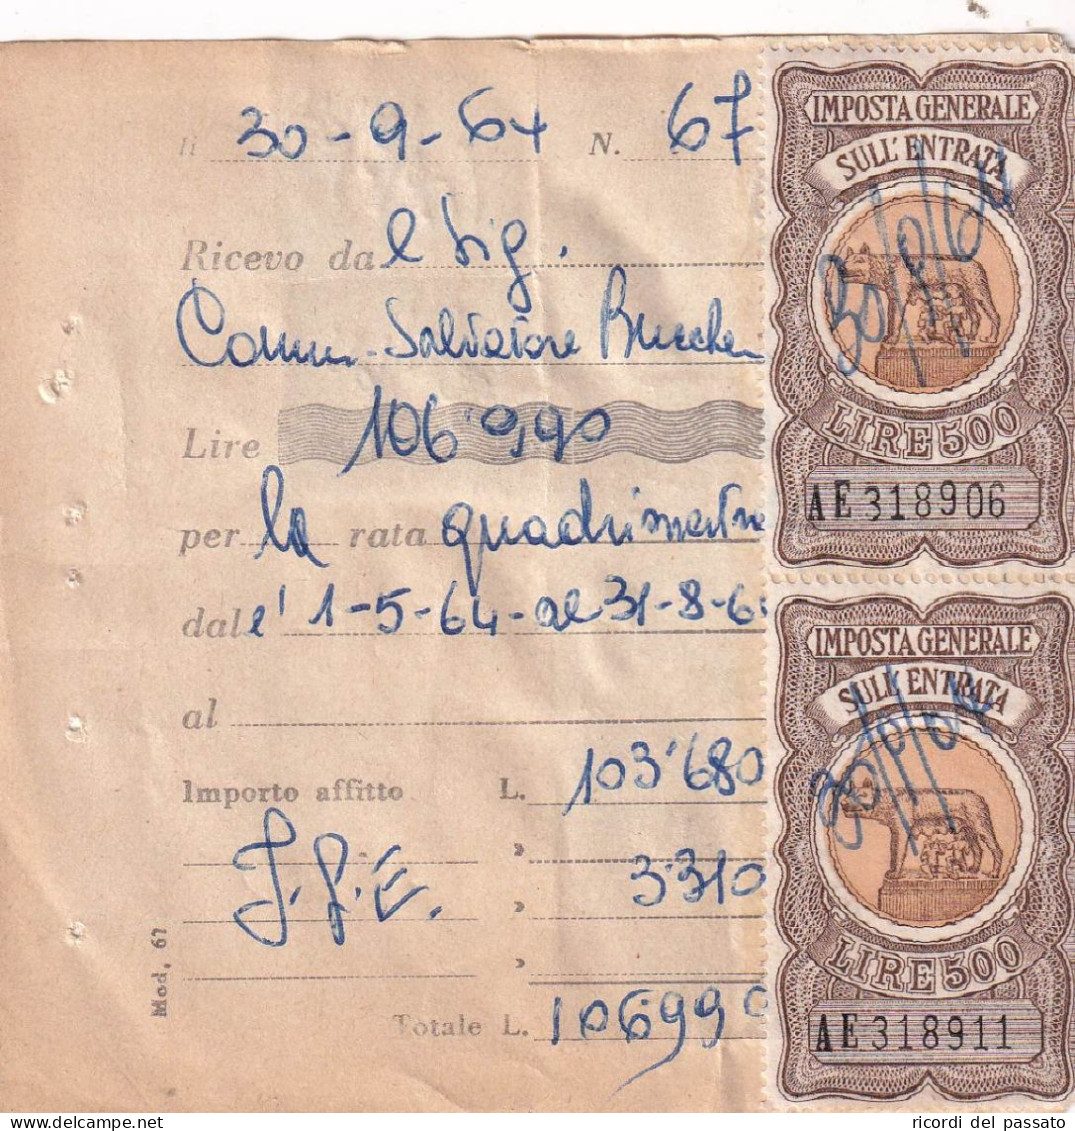 li 30-9-64 N. 67
Ricevo da l Sig.
Comm. Salvatore
Lire 106'990
per la rata quadrimestre
dall' 1-5-64 - al 31-8-6
al
Importo affitto L. 103'680
I.G.E. » 3310
»
»
Totale L. 106990
Mod. 67
IMPOSTA GENERALE
SULL'ENTRATA
30/9/64
LIRE 500
AE 318906
IMPOSTA GENERALE
SULL'ENTRATA
30/9/64
LIRE 500
AE 318911
ricordi del passato